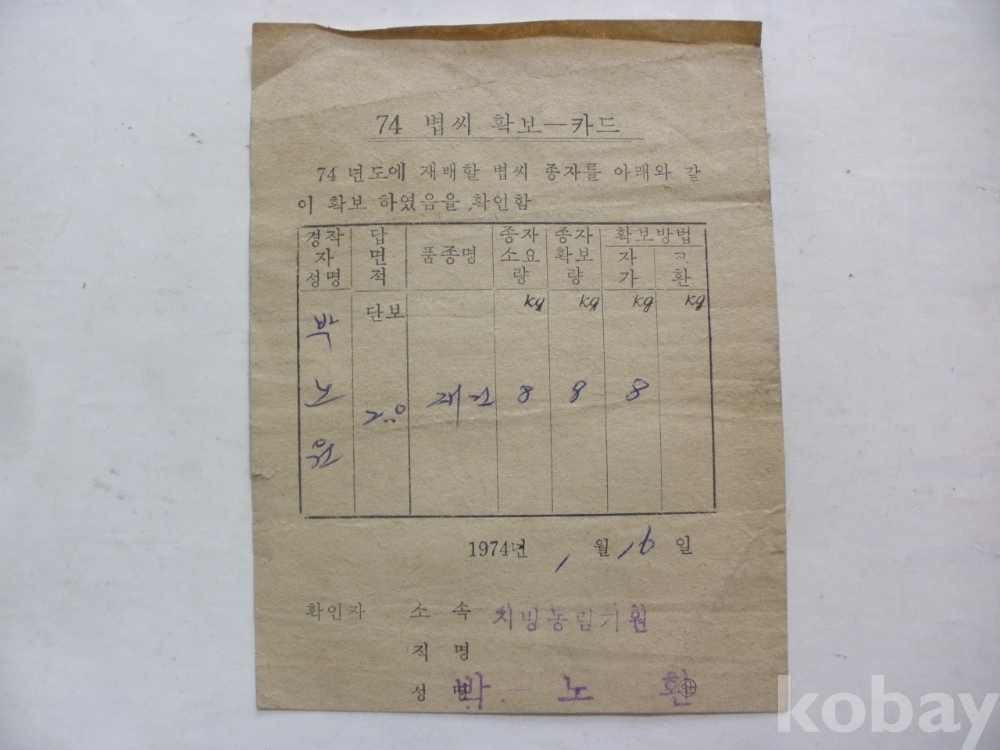 74 볍씨 확보—카드
74년도에 재배할 볍씨 종자를 아래와 같
이 확보 하였음을 확인함
경작자성명 답면적 품종명 종자소요량 종자확보량 확보방법
자가 교환
단보 kg kg kg kg
박노원 2.0 재건 8 8 8
1974년 1월 16일
확인자 소속 지방농림기원
직명
성명 박노환 ㊞
kobay